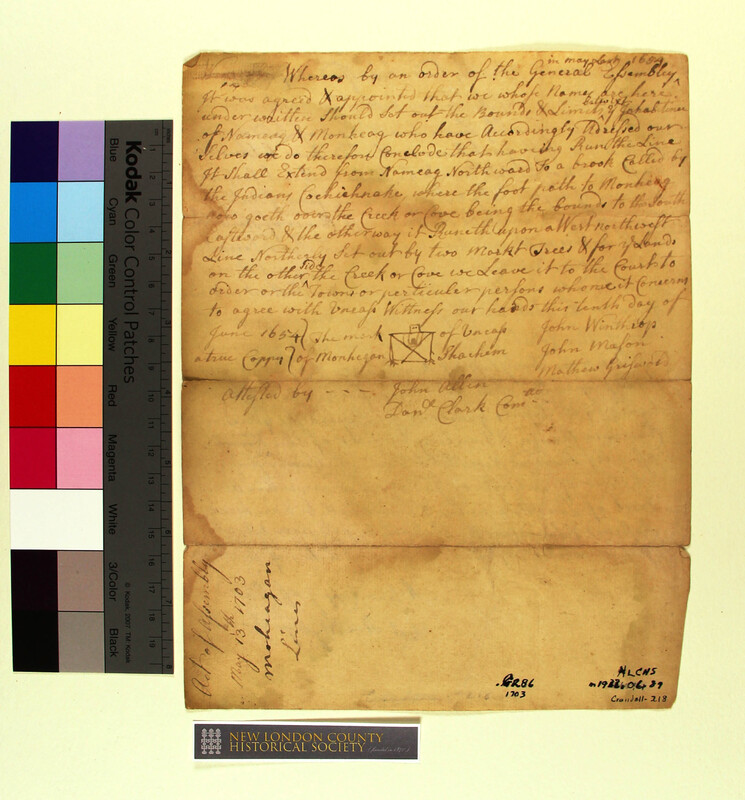 in may Last 1654
Whereas by an order of the General Assembly
It was agreed & appointed that we whose Names are here
under written Should Set out the Bounds & Limits
of Nameag & Monheag who have Accordingly Adresed our
Selves we do therefore Conclude that having Run the Line
It Shall Extend from Nameag Northward To a brook Called by
the Indians Cochichsnake, where the foot path to Monheag
now goeth over the Creek or Cove being the bounds to the South
Eastward & the other way it Runeth upon a West northwest
Line Northerly Set out by two Markt Trees & for ye Lands
on the other side the Creek or Cove we Leave it to the Court to
order or the Towns or perticuler persons whome it Concerns
to agree with Uncass Wittness our hands this tenth day of
June 1654 } The mark of Uncass John Winthrop
a true Coppy } of Monhegan Shachem John Mason
Mathew Grisward
Attested by - - - John Allin
Danll Clark Comtto
Act of Assembly
May 13th 1703
Moheagan
Lines
GR86
1703
NLCHS
Crandall-218
Kodak Color Control Patches
Blue Cyan Green Yellow Red Magenta White 3/Color Black
© Kodak, 2007 TM: Kodak
NEW LONDON COUNTY
HISTORICAL SOCIETY